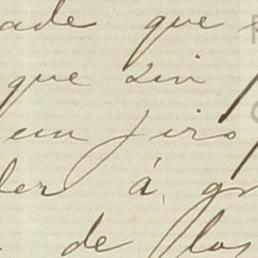 ade que
que sin
un giro
der á gr
de los